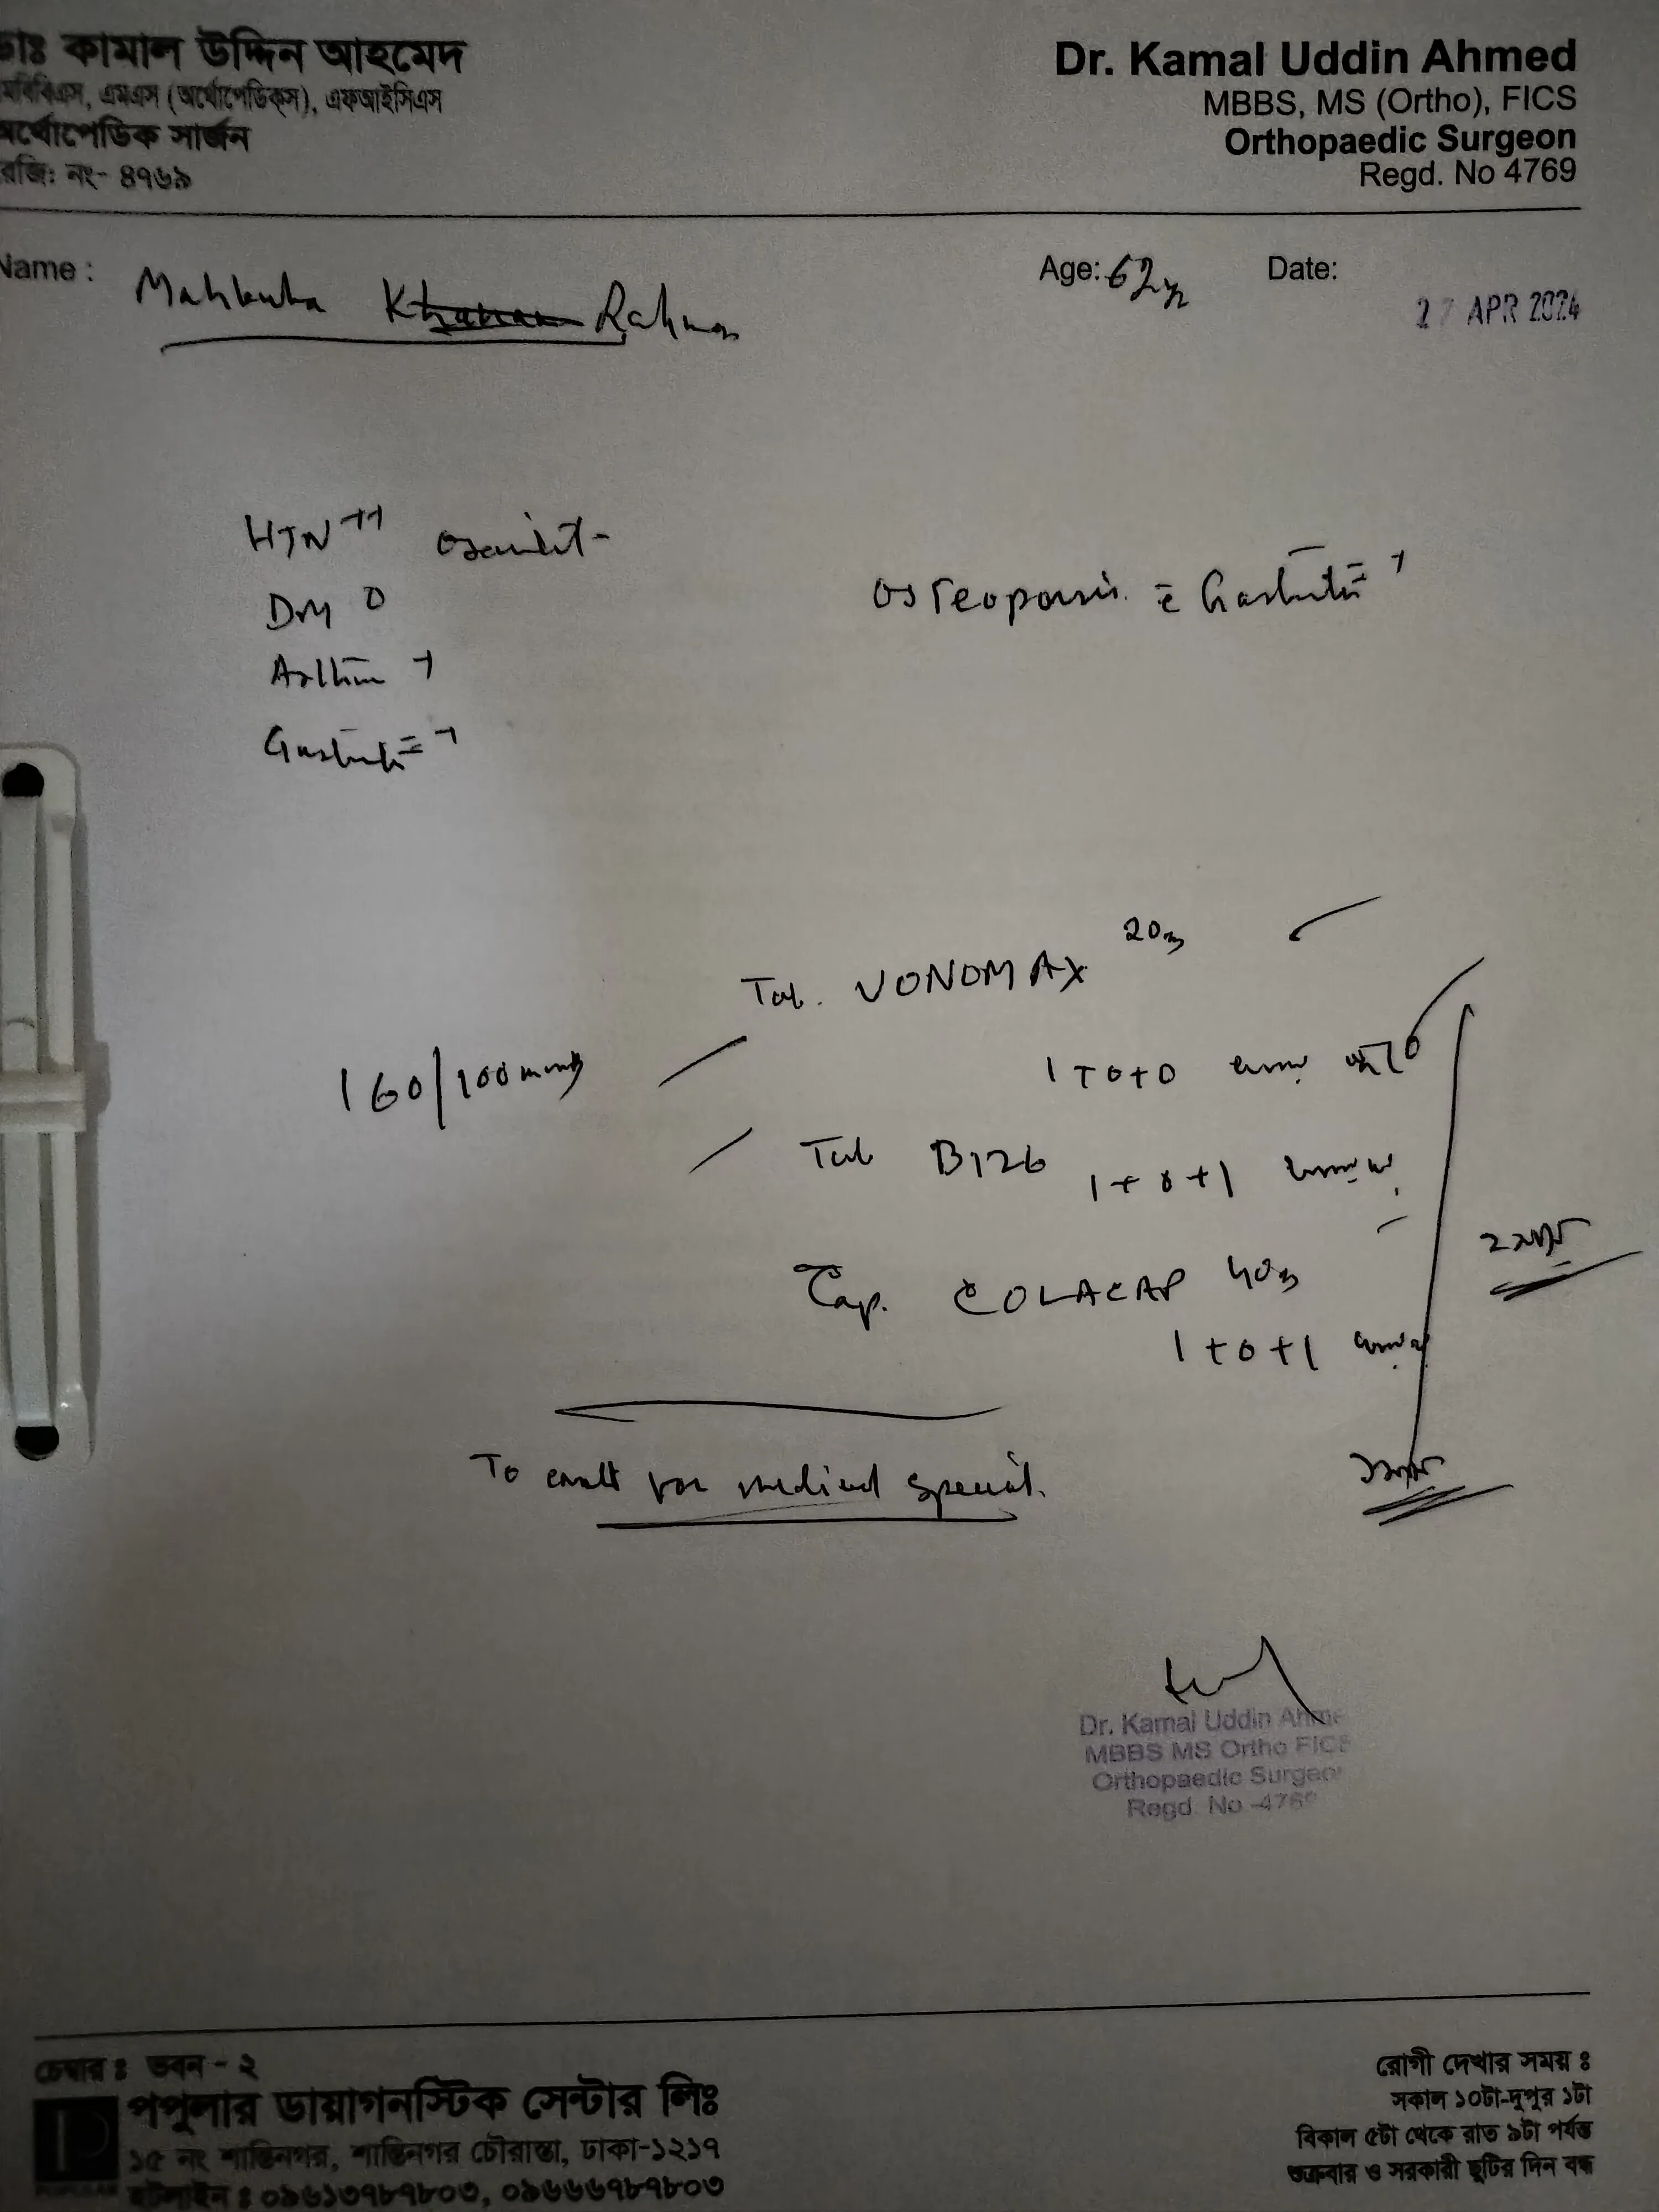 ডাঃ কামাল উদ্দিন আহমেদ
এমবিবিএস, এমএস (অর্থোপেডিক্স), এফআইসিএস
অর্থোপেডিক সার্জন
রেজি: নং- ৪৭৬৯
Dr. Kamal Uddin Ahmed
MBBS, MS (Ortho), FICS
Orthopaedic Surgeon
Regd. No 4769
Name : Rahman
Age: 62y
Date: 27 APR 2024
HTN ++
DM 0
Asthma +
Gastritis +
Osteoporosis c Gastritis +
Tab. VONOMAX 20mg
1+0+0
160/100mmHg
Tab B126
1+0+1
Cap. COLACAP 40mg
1+0+1
To consult for medical specialist.
Dr. Kamal Uddin Ahme
MBBS MS Ortho FICS
Orthopaedic Surgeon
Regd. No -4769
চেম্বার : ভবন - ২
পপুলার ডায়াগনস্টিক সেন্টার লিঃ
১৫ নং শান্তিনগর, শান্তিনগর চৌরাস্তা, ঢাকা-১২১৭
হটলাইন : ০৯৬১৩৭৮৭৮০৩, ০৯৬৬৬৭৮৭৮০৩
রোগী দেখার সময় :
সকাল ১০টা-দুপুর ১টা
বিকাল ৫টা থেকে রাত ৯টা পর্যন্ত
শুক্রবার ও সরকারী ছুটির দিন বন্ধ